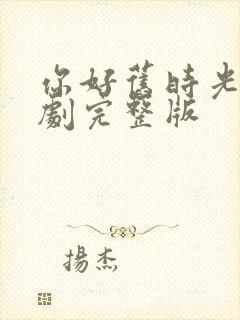 你好舊時光
劇完整版
揚杰